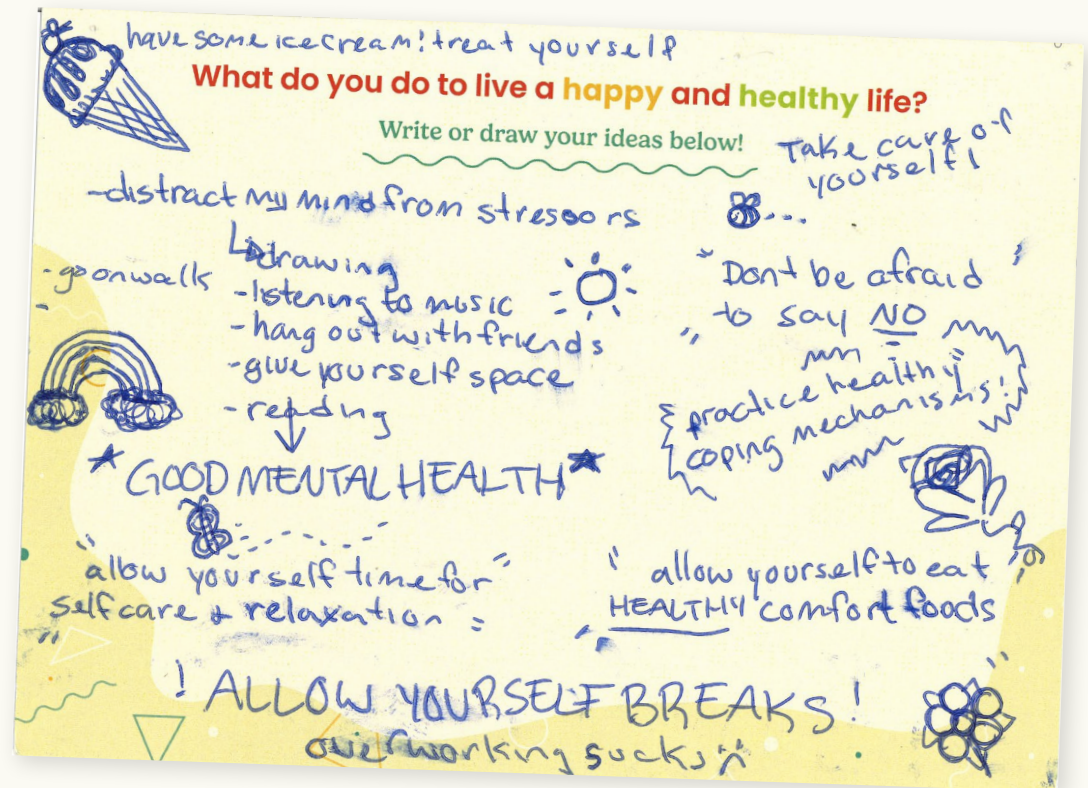 have some icecream! treat yourself
What do you do to live a happy and healthy life?
Write or draw your ideas below!
Take care of
yourself!
-distract my mind from stressors
-go on walk
drawing
-listening to music
-hang out with friends
-give yourself space
-reading
GOOD MENTAL HEALTH
"Dont be afraid
to say NO"
practice healthy
coping mechanisms!
"allow yourself time for
selfcare + relaxation"
"allow yourself to eat
HEALTHY comfort foods"
! ALLOW YOURSELF BREAKS!
overworking sucks :(